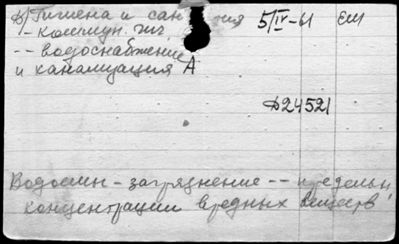 в) Гигиена и сан 5/IV-61 ЕМ
- коммун. гиг.
-- водоснабжение
и канализация А
Ф24521
Водоемы - загрязнение -- предельн
концентрации вредных веществ